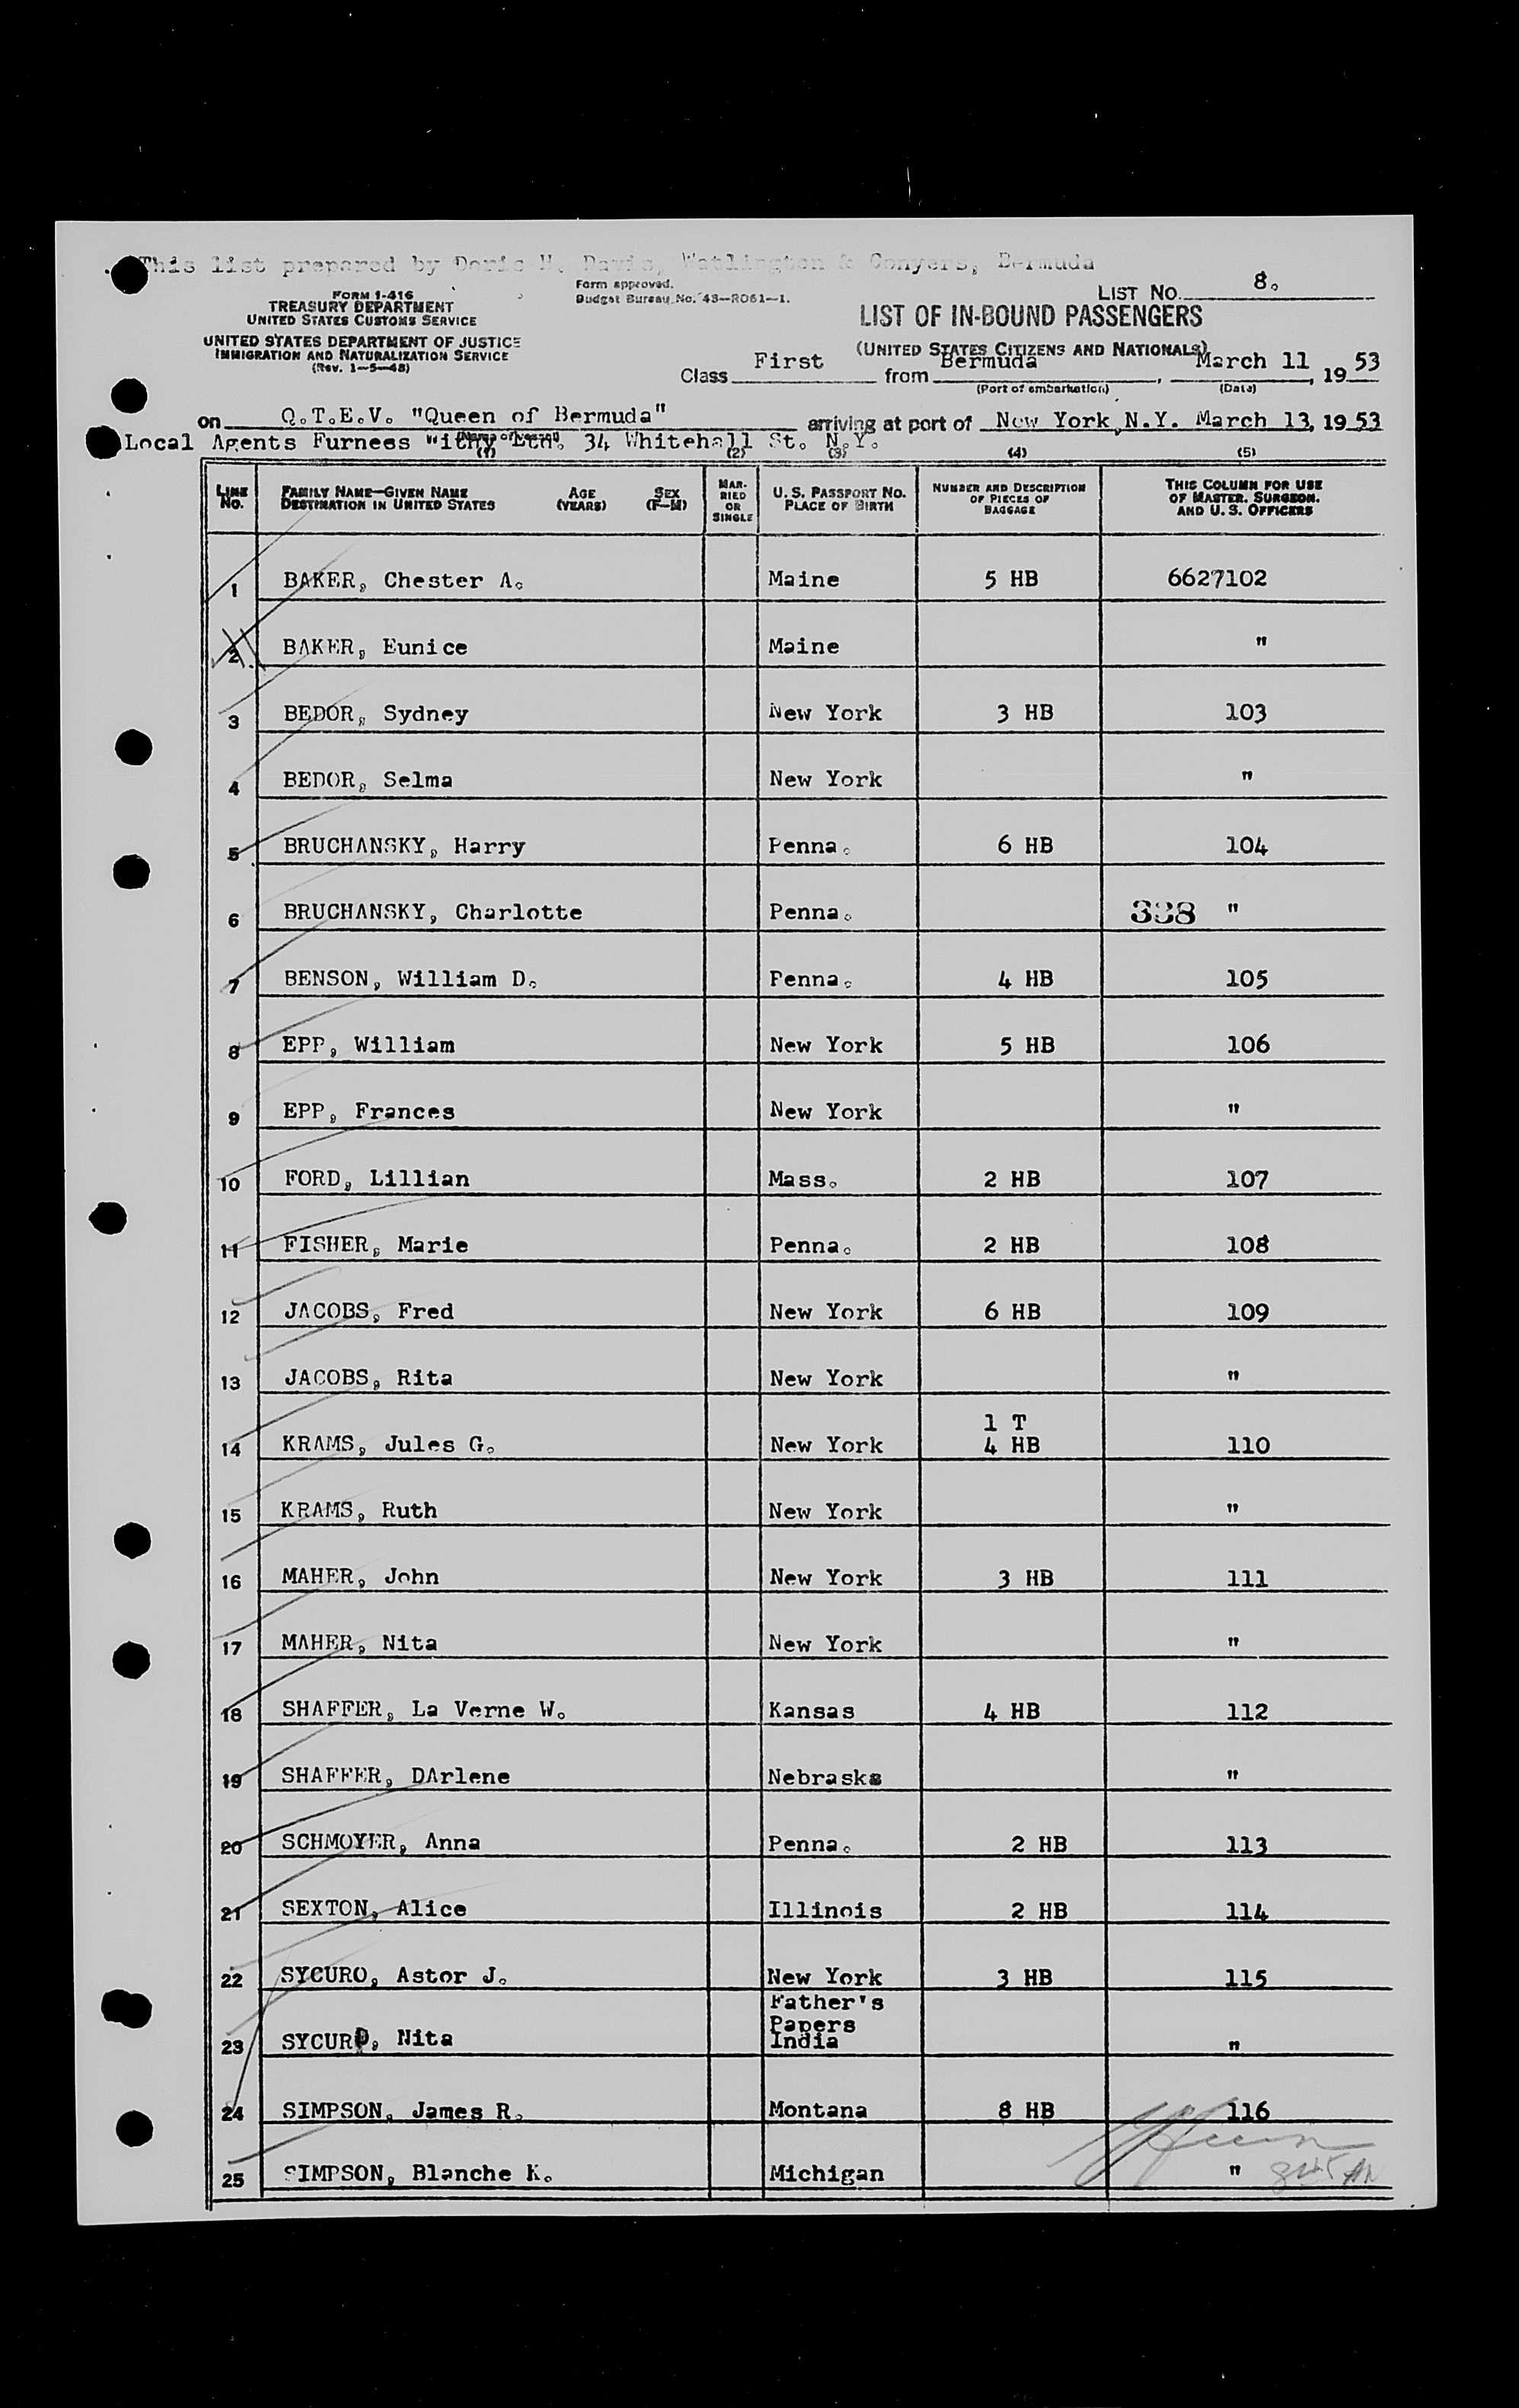 This list prepared by Doris H. Davis, Watlington & Conyers, Bermuda
FORM I-416
TREASURY DEPARTMENT
UNITED STATES CUSTOMS SERVICE
UNITED STATES DEPARTMENT OF JUSTICE
IMMIGRATION AND NATURALIZATION SERVICE
(Rev. 1-5-48)
Form approved.
Budget Bureau No. 43-R061-1.
LIST NO. 8.
LIST OF IN-BOUND PASSENGERS
(UNITED STATES CITIZENS AND NATIONALS)
Class First from Bermuda, March 11, 1953
(Port of embarkation) (Date)
on Q.T.E.V. "Queen of Bermuda" arriving at port of New York, N.Y. March 13, 1953
(Name of vessel)
Local Agents Furness Withy Ltd. 34 Whitehall St. N.Y.
(1) (2) (3) (4) (5)
LINE NO. FAMILY NAME—GIVEN NAME DESTINATION IN UNITED STATES AGE (YEARS) SEX (F—M) MARRIED OR SINGLE U. S. PASSPORT NO. PLACE OF BIRTH NUMBER AND DESCRIPTION OF PIECES OF BAGGAGE THIS COLUMN FOR USE OF MASTER, SURGEON, AND U. S. OFFICERS
1 BAKER, Chester A. Maine 5 HB 6627102
2 BAKER, Eunice Maine "
3 BEDOR, Sydney New York 3 HB 103
4 BEDOR, Selma New York "
5 BRUCHANSKY, Harry Penna. 6 HB 104
6 BRUCHANSKY, Charlotte Penna. 338 "
7 BENSON, William D. Penna. 4 HB 105
8 EPP, William New York 5 HB 106
9 EPP, Frances New York "
10 FORD, Lillian Mass. 2 HB 107
11 FISHER, Marie Penna. 2 HB 108
12 JACOBS, Fred New York 6 HB 109
13 JACOBS, Rita New York "
1 T
14 KRAMS, Jules G. New York 4 HB 110
15 KRAMS, Ruth New York "
16 MAHER, John New York 3 HB 111
17 MAHER, Nita New York "
18 SHAFFER, La Verne W. Kansas 4 HB 112
19 SHAFFER, DArlene Nebraska "
20 SCHMOYER, Anna Penna. 2 HB 113
21 SEXTON, Alice Illinois 2 HB 114
22 SYCURO, Astor J. New York 3 HB 115
Father's
Papers
23 SYCURO, Nita India "
24 SIMPSON, James R. Montana 8 HB 116
25 SIMPSON, Blanche K. Michigan " 845 AM